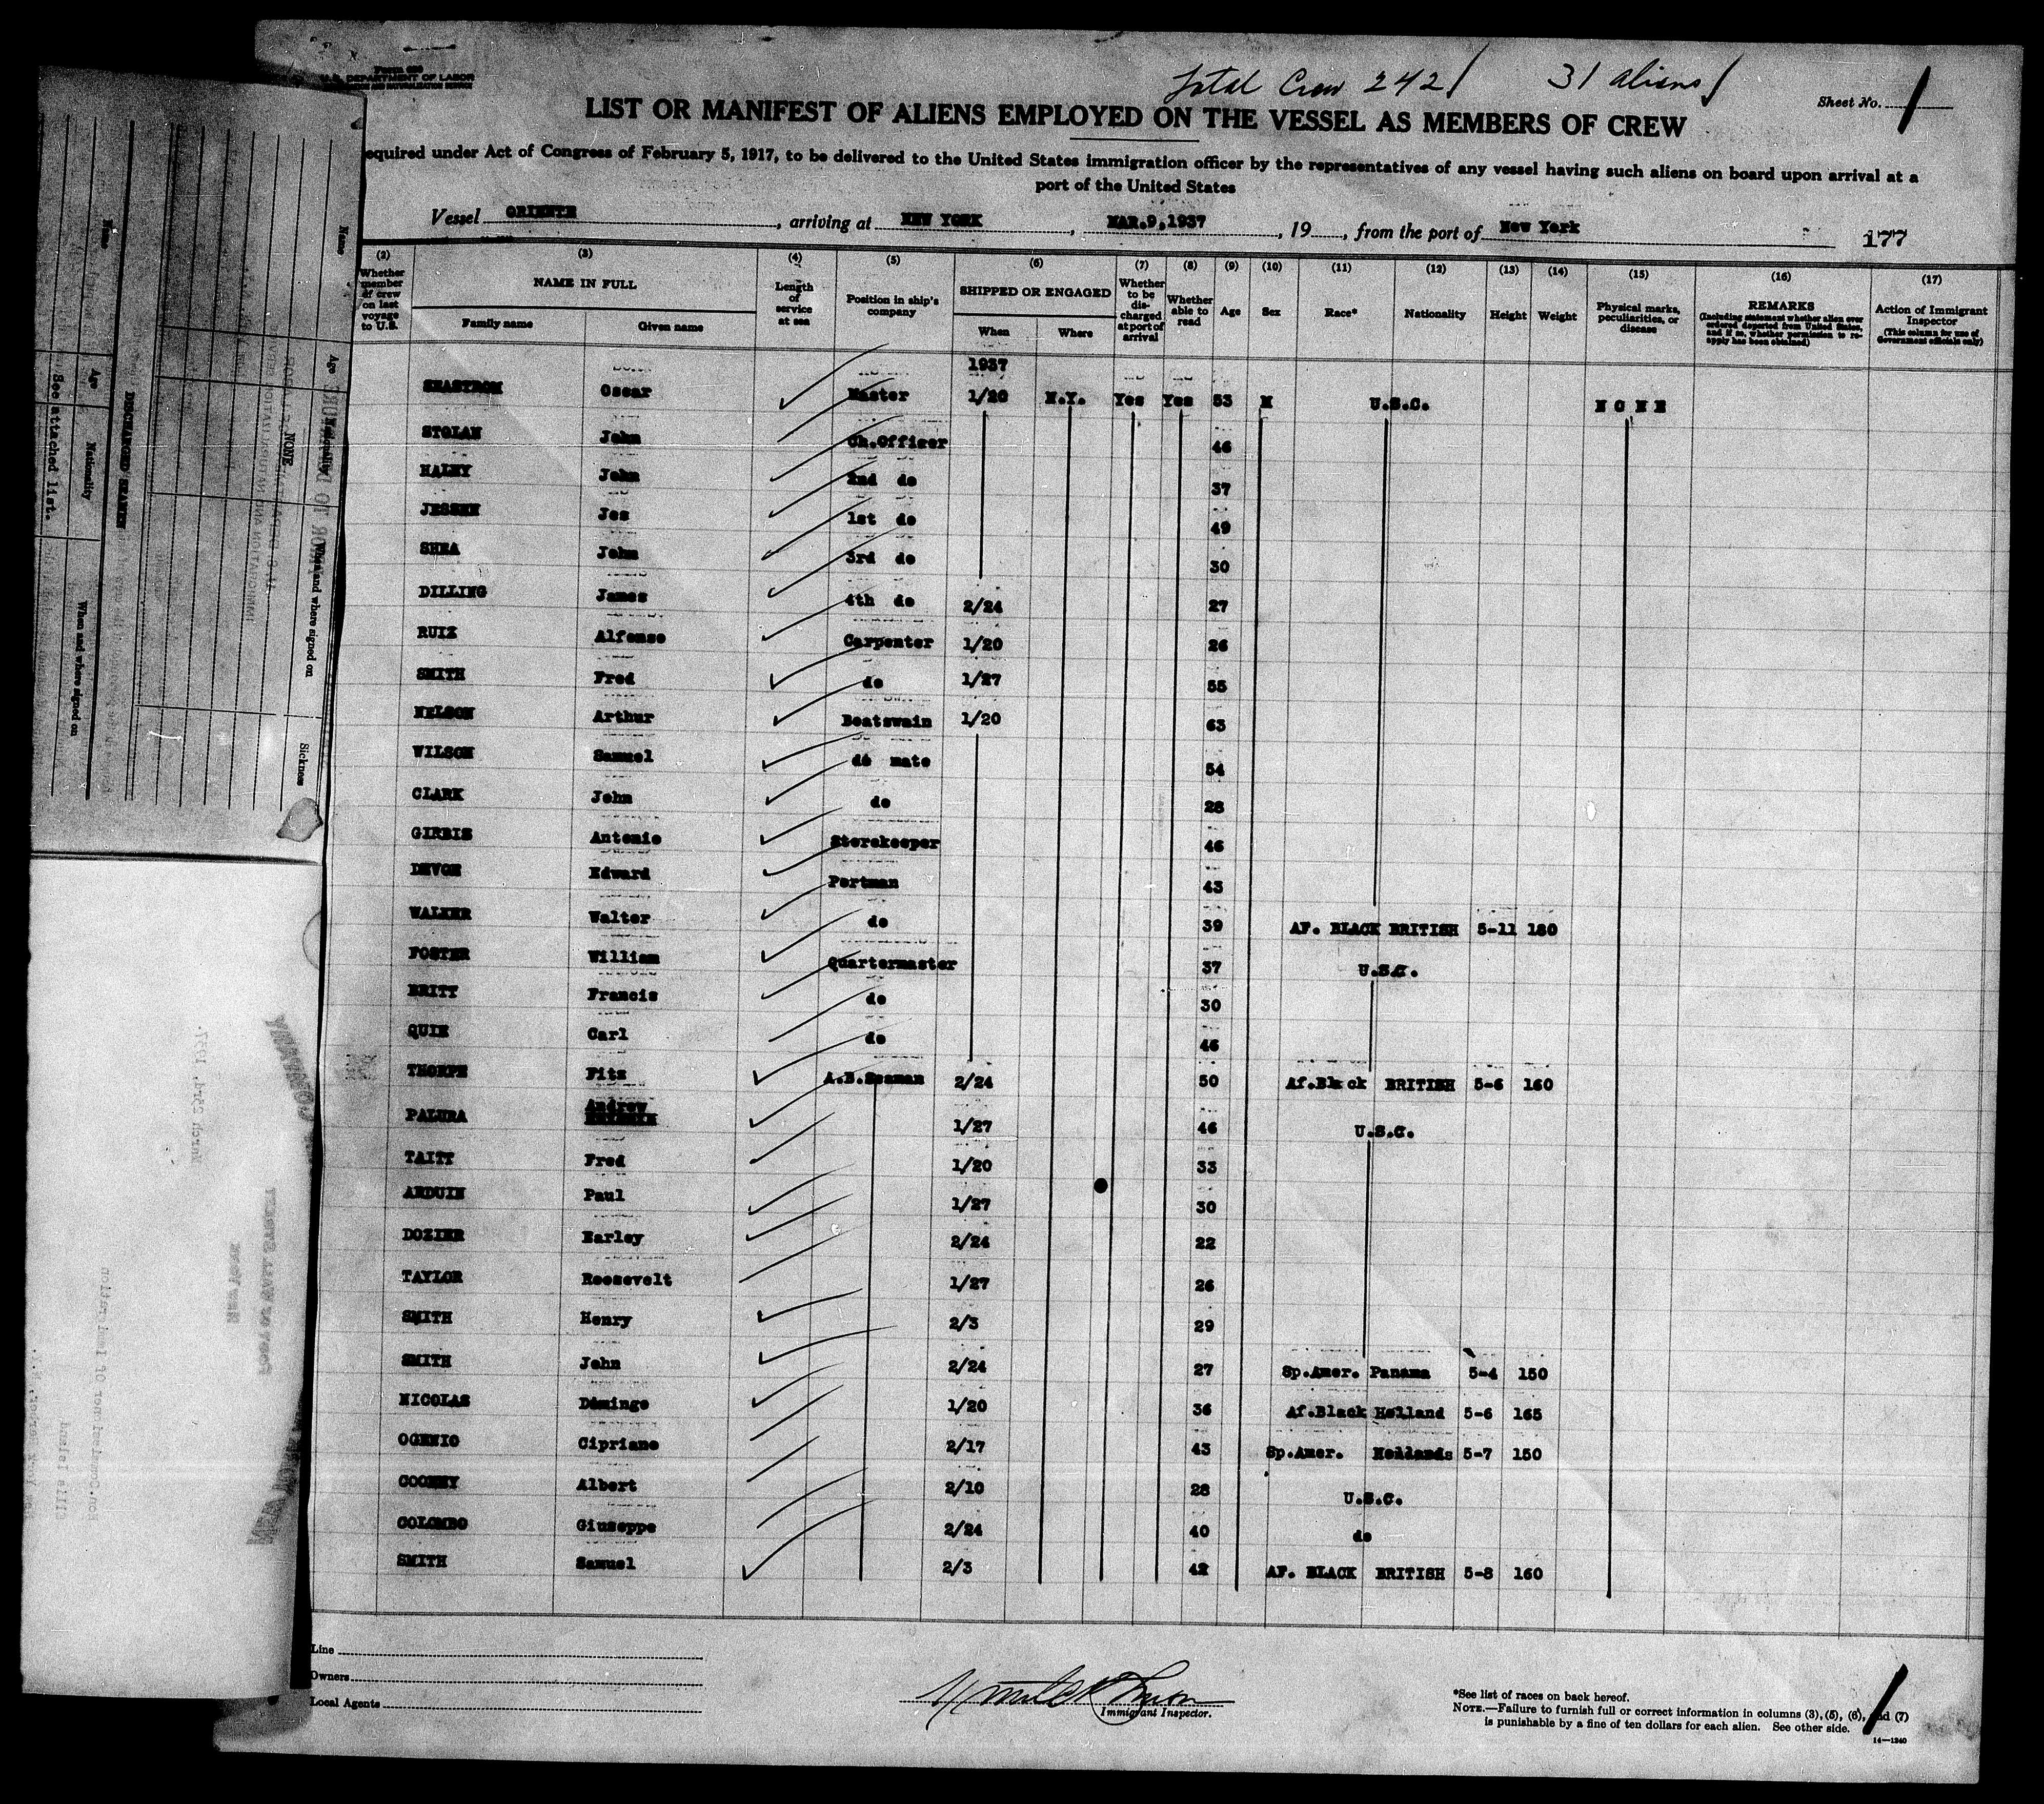 Form 680
U.S. DEPARTMENT OF LABOR
IMMIGRATION AND NATURALIZATION SERVICE
Total Crew 242/ 31 aliens/
Sheet No. 1
LIST OR MANIFEST OF ALIENS EMPLOYED ON THE VESSEL AS MEMBERS OF CREW
equired under Act of Congress of February 5, 1917, to be delivered to the United States immigration officer by the representatives of any vessel having such aliens on board upon arrival at a
port of the United States
Vessel ORIENTE, arriving at NEW YORK, MAR.9,1937, 19, from the port of New York 177
(2) (3) (4) (5) (6) (7) (8) (9) (10) (11) (12) (13) (14) (15) (16) (17)
Whether member of crew on last voyage to U.S.
NAME IN FULL
Family name Given name
Length of service at sea
Position in ship's company
SHIPPED OR ENGAGED
When Where
Whether to be discharged at port of arrival
Whether able to read
Age Sex Race* Nationality Height Weight
Physical marks, peculiarities, or disease
REMARKS
(Including statement whether alien ever ordered deported from United States, and if so, whether permission to reapply has been obtained)
Action of Immigrant Inspector
(This column for use of Government officials only)
1937
SEASTROM Oscar Master 1/20 N.Y. Yes Yes 53 M U.S.C. N O N E
STOLAN John Ch.Officer 46
HALEY John 2nd do 37
JESSEN Jes 1st do 49
SHEA John 3rd do 30
DILLING James 4th do 2/24 27
RUIZ Alfonso Carpenter 1/20 26
SMITH Fred do 1/27 55
NELSON Arthur Boatswain 1/20 63
WILSON Samuel do mate 54
CLARK John do 28
GIRBIS Antonio Storekeeper 46
DEVOE Edward Portman 43
WALKER Walter do 39 AF. BLACK BRITISH 5-11 180
FOSTER William Quartermaster 37 U.S.C.
BRITT Francis do 30
QUIE Carl do 46
THORPE Fitz A.B.Seaman 2/24 50 Af.Black BRITISH 5-6 160
PALURA Andrew 1/27 46 U.S.C.
TAITT Fred 1/20 33
ARDUIN Paul 1/27 30
DOZIER Earley 2/24 22
TAYLOR Roosevelt 1/27 26
SMITH Henry 2/3 29
SMITH John 2/24 27 Sp.Amer. Panama 5-4 150
NICOLAS Domingo 1/20 36 Af.Black Holland 5-6 165
OGENIO Cipriano 2/17 43 Sp.Amer. Hollands 5-7 150
COONEY Albert 2/10 28 U.S.C.
COLOMBO Giuseppe 2/24 40 do
SMITH Samuel 2/3 42 AF. BLACK BRITISH 5-8 160
Line
Owners
Local Agents
Immigrant Inspector.
*See list of races on back hereof.
NOTE.—Failure to furnish full or correct information in columns (3), (5), (6), and (7)
is punishable by a fine of ten dollars for each alien. See other side.
14—1240
1
Name Age Nationality When and where signed on
See attached list.
DISCHARGED SEAMEN
Name Age Nationality When and where signed on Sickness
NONE
March 23rd, 1937.
Hon. Commissioner Of Immigration
Ellis Island
New York Harbor, N.Y.
FOOT OF WALL STREET
New York